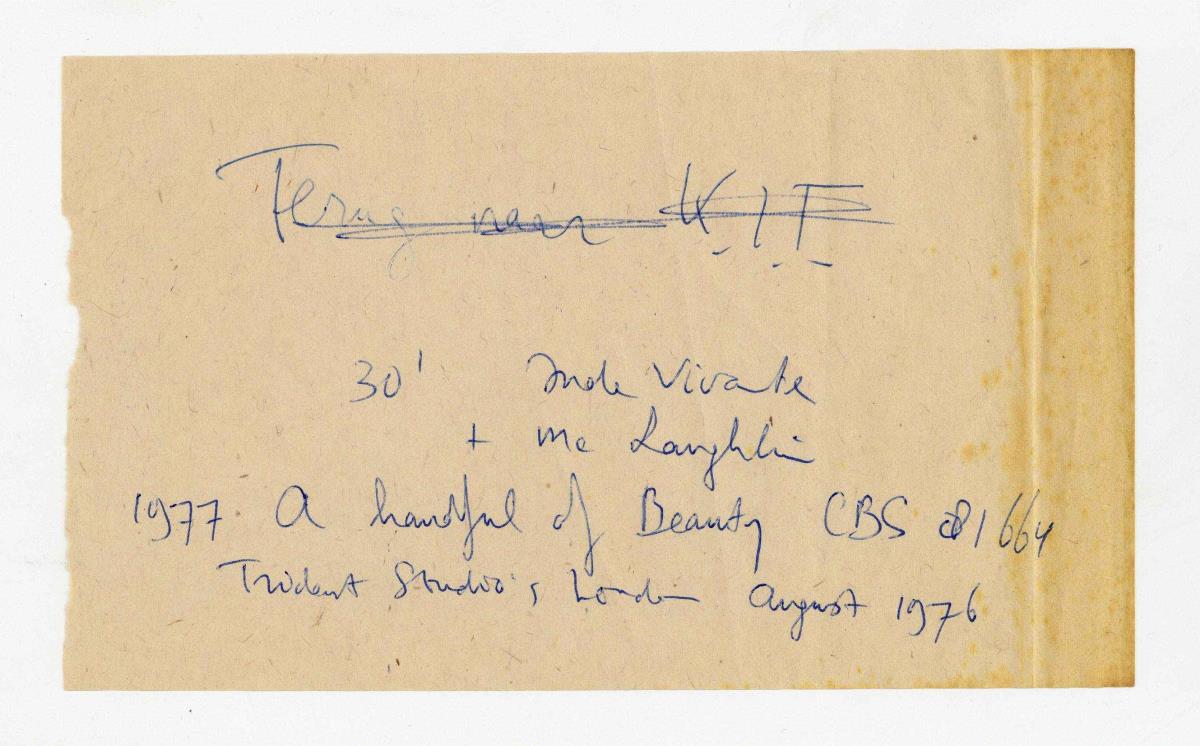 Terug naar KIT
30' Inde Vivante
+ Mc Laughlin
1977 A handful of Beauty CBS 81664
Trident Studio's London August 1976